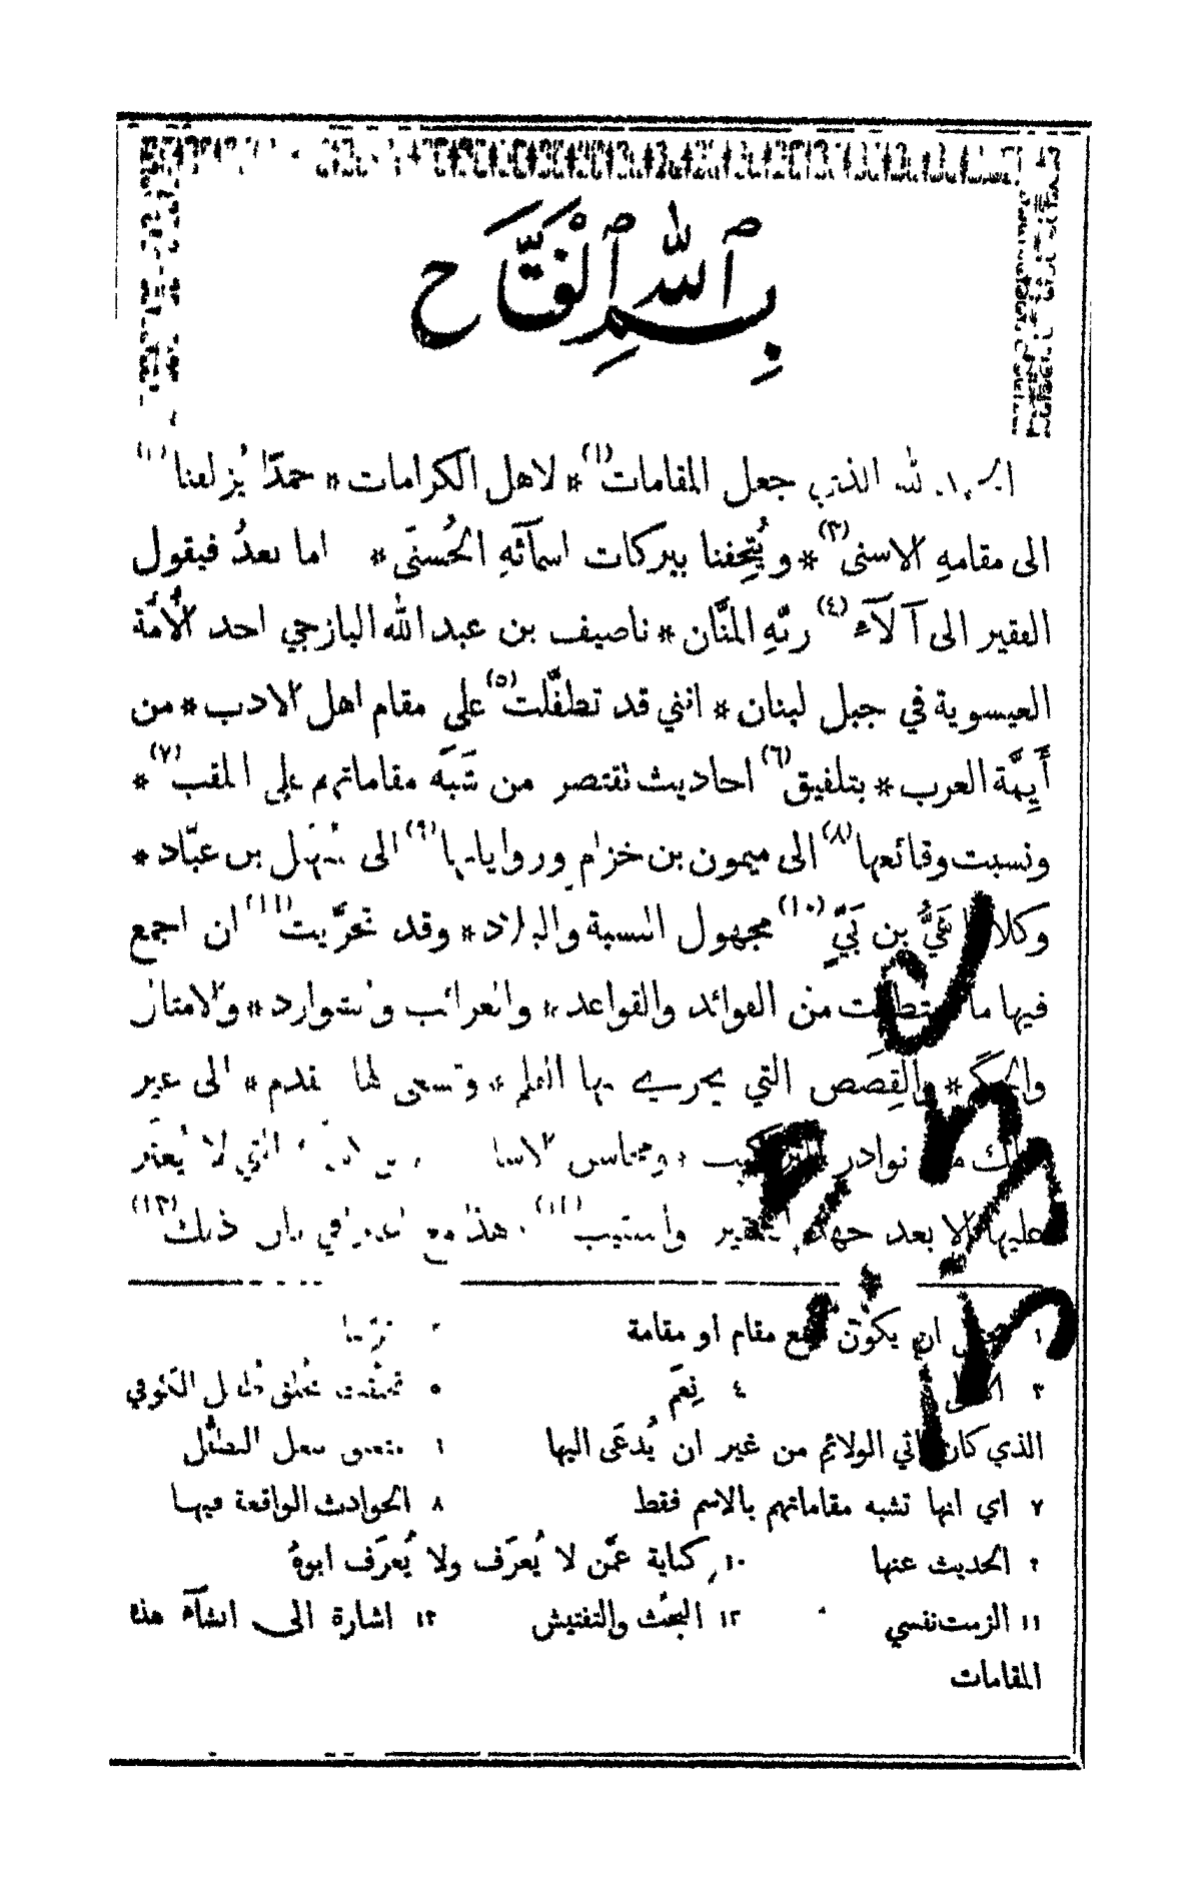 بسم الله الفتاح
لله الذي جعل المقامات(١)* لاهل الكرامات* حمدًا يُزلفنا
الى مقامهِ الاسنى(٣)* ويُتحِفنا ببركات اسمآئهِ الحُسنَى* اما بعدُ فيقول
الفقير الى آلآءِ(٤) ربّهِ المنَّان* ناصيف بن عبد الله اليازجي احد الأُمَّة
العيسوية في جبل لبنان* انني قد تطفَّلت(٥) على مقام اهل الادب* من
أَيِمَّة العرب* بتلفيق(٦) احاديث تقتصر من شَبَه مقاماتهم على اللقب(٧)*
ونسبت وقائعها(٨) الى ميمون بن خزام ورواياتها(٩) الى سُهَيل بن عبَّاد*
وكلاهما هَيُّ بن بَيٍّ(١٠) مجهول النسبة والبلاد* وقد تحرَّيت(١١) ان اجمع
فيها ما استطعت من الفوائد والقواعد* والغرائب والشوارد* والامثال
والحِكَم* والقِصَص التي يجري بها القلم* وتسعى لها القدم* الى غير
ذلك من نوادر التراكيب* ومحاسن الاساليب التي لا يُعثَر
عليها الا بعد جهد التنقير والتنقيب(١٢)* هذا مع ذلك(١٣)
١ يحتمل ان يكون جمع مقام او مقامة
٤ نِعَم ٥ الكوفي
الذي كان ياتي الولائم من غير ان يُدعَى اليها ٦ متعلق بفعل التطفُّل
٧ اي انها تشبه مقاماتهم بالاسم فقط ٨ الحوادث الواقعة فيها
٩ الحديث عنها ١٠ كناية عمَّن لا يُعرَف ولا يُعرَف ابوهُ
١١ الزمت نفسي ١٢ البحث والتفتيش ١٣ اشارة الى انشآء هذه
المقامات